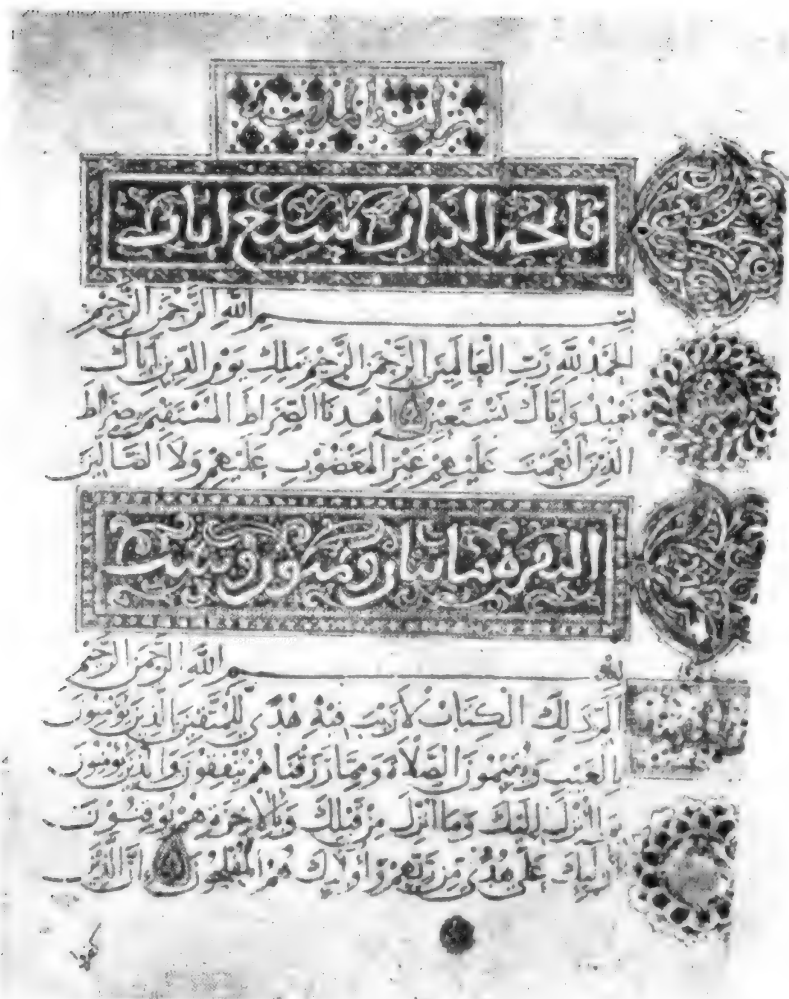 فاتحة الكتاب سبع ايات
بسم الله الرحمن الرحيم
الحمد لله رب العالمين الرحمن الرحيم ملك يوم الدين اياك
نعبد واياك نستعين اهدنا الصراط المستقيم صراط
الذين انعمت عليهم غير المغضوب عليهم ولا الضالين
البقرة مائتان وثمانون وست
بسم الله الرحمن الرحيم
الم ذلك الكتاب لا ريب فيه هدى للمتقين الذين يؤمنون
بالغيب ويقيمون الصلاة ومما رزقناهم ينفقون والذين يؤمنون
بما انزل اليك وما انزل من قبلك وبالاخرة هم يوقنون
اولئك على هدى من ربهم واولئك هم المفلحون ان الذين